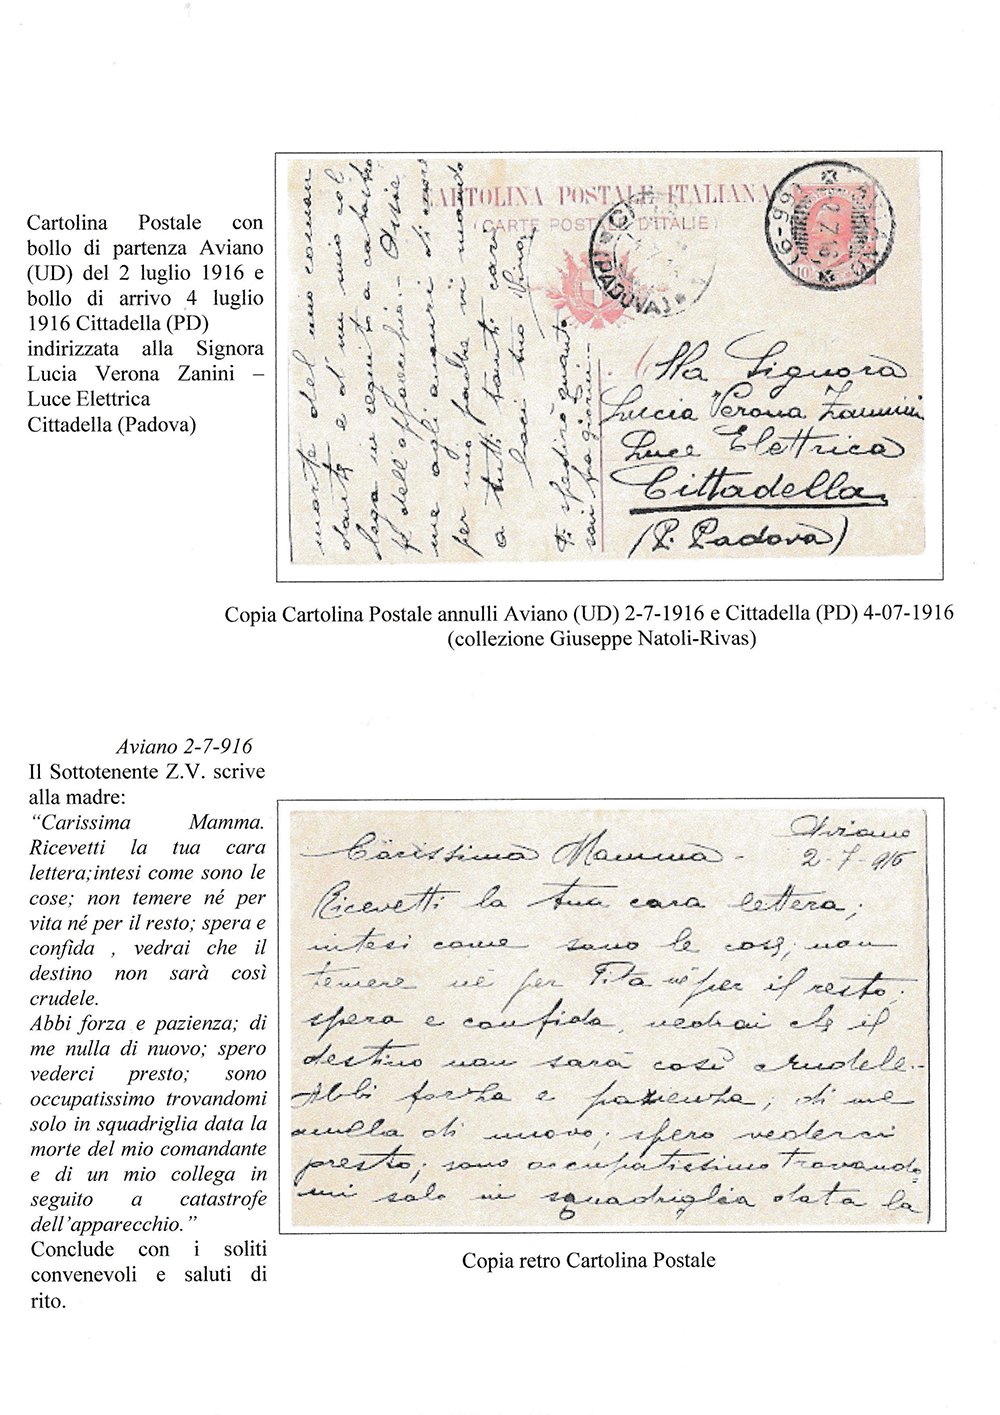 Cartolina Postale con
bollo di partenza Aviano
(UD) del 2 luglio 1916 e
bollo di arrivo 4 luglio
1916 Cittadella (PD)
indirizzata alla Signora
Lucia Verona Zanini –
Luce Elettrica
Cittadella (Padova)
CARTOLINA POSTALE ITALIANA
(CARTE POSTALE D'ITALIE)
(PADOVA)
2.7.16
(6-99)
10
morte del mio coman
dante e di un mio col
lega in seguito a catastro
fe dell'apparecchio. -
me agli auguri di cuore
per mio padre vi mando
a tutti tanti cari
baci tuo
Ti spedirò quanto
fra giorni.
Alla Signora
Lucia Verona Zannini
Luce Elettrica
Cittadella
(P. Padova)
Copia Cartolina Postale annulli Aviano (UD) 2-7-1916 e Cittadella (PD) 4-07-1916
(collezione Giuseppe Natoli-Rivas)
Aviano 2-7-916
Il Sottotenente Z.V. scrive
alla madre:
“Carissima Mamma.
Ricevetti la tua cara
lettera;intesi come sono le
cose; non temere né per
vita né per il resto; spera e
confida , vedrai che il
destino non sarà così
crudele.
Abbi forza e pazienza; di
me nulla di nuovo; spero
vederci presto; sono
occupatissimo trovandomi
solo in squadriglia data la
morte del mio comandante
e di un mio collega in
seguito a catastrofe
dell’apparecchio.”
Conclude con i soliti
convenevoli e saluti di
rito.
Aviano
2-7-916
Carissima Mamma -
Ricevetti la tua cara lettera;
intesi come sono le cose; non
temere nè per Vita nè per il resto;
spera e confida, vedrai che il
destino non sarà così crudele.-
Abbi forza e pazienza; di me
nulla di nuovo; spero vederci
presto; sono occupatissimo trovando
mi solo in squadriglia data la
Copia retro Cartolina Postale